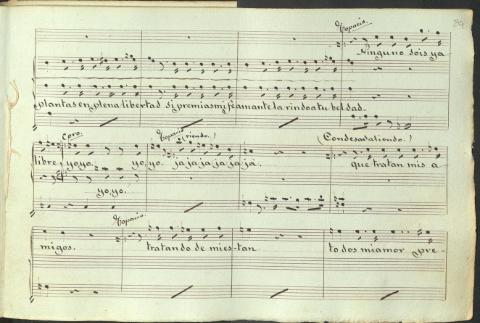 Topacio.
39
Ninguno sois ya
plantas en plena libertad si premias mi fe amante la rindo a tu beldad.
Coro. Topacio (riendo.) (Condesa saliendo.)
libre, yo yo. yo, yo. ja ja ja ja ja ja. que tratan mis a
yo, yo.
Topacio.
migos. tratando de mi es-tan to dos mi amor pre-